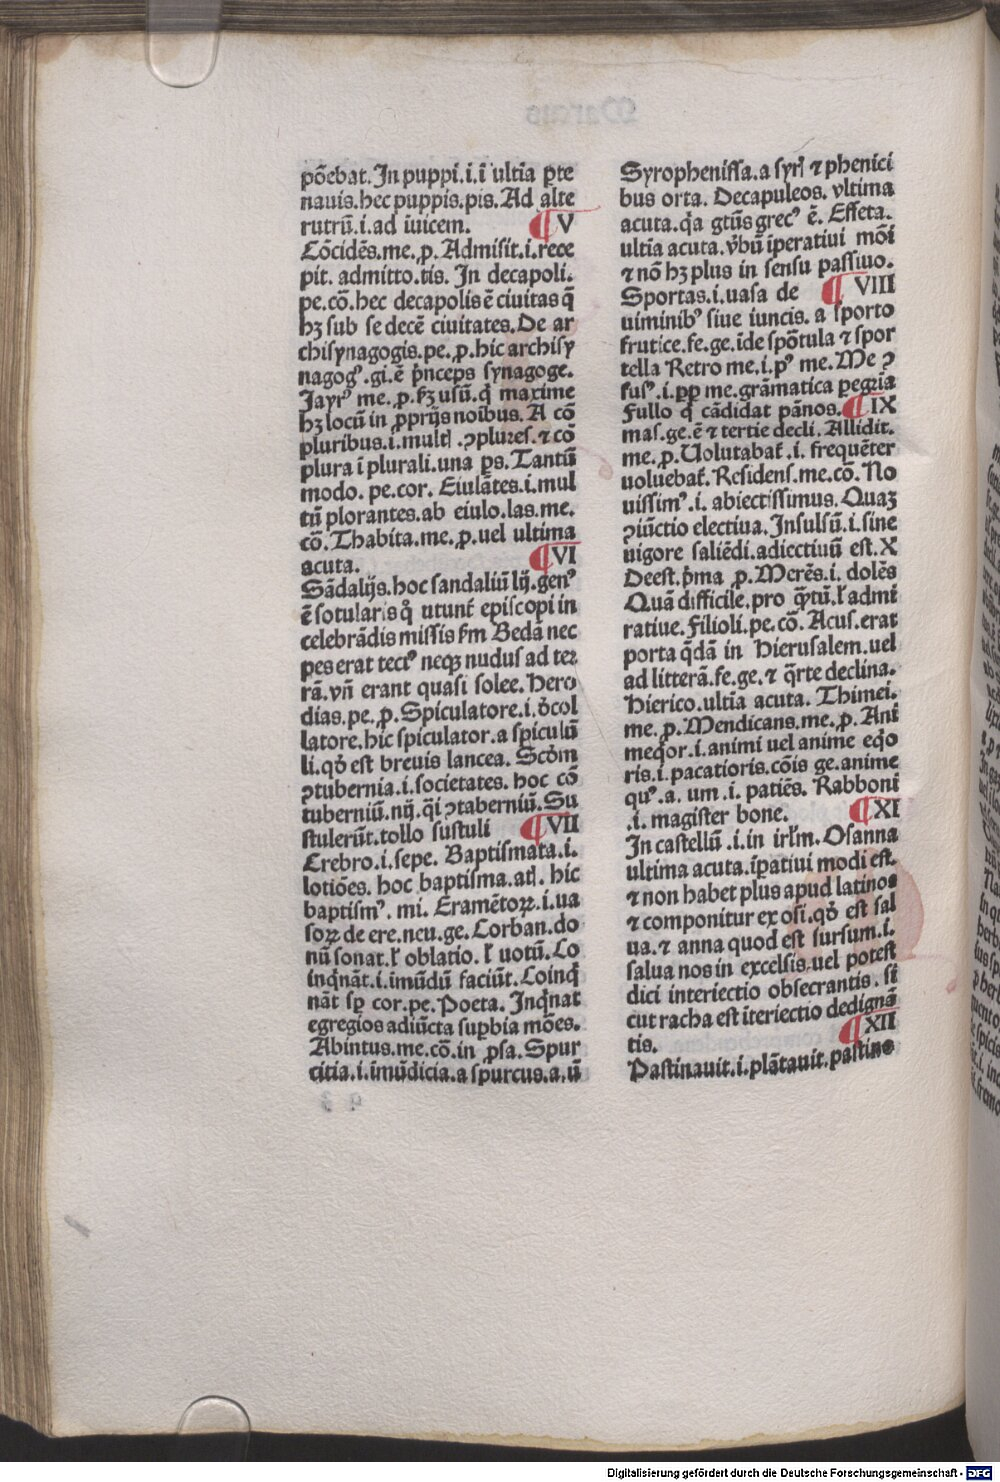 põebat. In puppi. i. ĩ ultĩa pte
nauis. hec puppis. pis. Ad alte
rutrũ. i. ad ĩuicem. ¶ V
Cõcidẽs. me. ꝓ. Admisit. i. rece
pit. admitto. tis. In decapoli.
pe. cõ. hec decapolis ẽ ciuitas q̃
hꝫ sub se decẽ ciuitates. De ar
chisynagogis. pe. ꝓ. hic archisy
nagogꝰ. gi. ẽ p̃nceps synagoge.
Jayrꝰ me. ꝓ. hꝫ usũ. q̃ maxime
hꝫ locũ in ꝓprijs noĩbus. A cõ
pluribus. i. mult . ꝯplures. ⁊ cõ
plura ĩ plurali. una ps. Tantũ
modo. pe. cor. Eiulãtes. i. mul
tũ plorantes. ab eiulo. las. me.
cõ. Thabita. me. ꝓ. uel ultima
acuta. ¶ VI
Sãdalijs. hoc sandaliũ lij. genꝰ
ẽ sotularis q̃ utunt᷑ episcopi in
celebrãdis missis s̃m Bedã nec
pes erat tectꝰ neqꝫ nudus ad ter
rã. vñ erant quasi solee. Hero
dias. pe. ꝓ. Spiculatore. i. d̃col
latore. hic spiculator. a spiculũ
li. qd̃ est breuis lancea. Scd̃m
ꝯtubernia. i. societates. hoc cõ
tuberniũ. nij. q̃i ꝯtaberniũ. Su
stulerũt. tollo sustuli ¶ VII
Crebro. i. sepe. Baptismata. i.
lotiões. hoc baptisma. atꝭ. hic
baptismꝰ. mi. Eramẽtoꝝ. i. ua
soꝝ de ere. neu. ge. Corban. do
nũ sonat. ł oblatio. ł uotũ. Co
inq̃nãt. i. imũdũ faciũt. Coinq̃
nãt sꝑ cor. pe. Poeta. Inq̃nat
egregios adiũcta suꝑbia mões.
Abintus. me. cõ. in ꝓsa. Spur
citia. i. ĩmũdicia. a spurcus. a. ũ
Syrophenissa. a syrꝭ ⁊ phenici
bus orta. Decapuleos. vltima
acuta. q̃a gtũs grecꝰ ẽ. Effeta.
ultĩa acuta. v̾bũ ĩperatiui mõi
⁊ nõ hꝫ plus in sensu passiuo.
Sportas. i. uasa de ¶ VIII
uiminibꝰ siue iuncis. a sporto
frutice. fe. ge. ĩde spõtula ⁊ spor
tella Retro me. i. pꝰ me. Me ꝯ
fusꝰ. i. ꝓp me. grãmatica peg̾ĩa
Fullo q̃ cãdidat pãnos. ¶ IX
mas. ge. ẽ ⁊ tertie decli. Allidit.
me. ꝓ. Uolutabat᷑. i. frequẽter
uoluebat᷑. Residens. me. cõ. No
uissimꝰ. i. abiectissimus. Quaꝫ
ꝯiũctio electiua. Insulsũ. i. sine
uigore saliẽdi. adiectiuũ est. X
Deest. p̃ma ꝓ. Merẽs. i. dolẽs
Quã difficile. pro q̃ꝫtũ. ł admi
ratiue. Filioli. pe. cõ. Acus. erat
porta q̃dã in Hierusalem. uel
ad litterã. fe. ge. ⁊ q̃rte declina.
Hierico. ultĩa acuta. Thimei.
me. ꝓ. Mendicans. me. ꝓ. Ani
meq̃or. i. animi uel anime eq̃o
ris. i. pacatioris. cõis ge. anime
quꝰ. a. um. i. patiẽs. Rabboni
.i. magister bone. ¶ XI
In castellũ . i. in irłm. Osanna
ultima acuta. ĩꝑatiui modi est.
⁊ non habet plus apud latinos
⁊ componitur ex osi. qd̃ est sal
ua. ⁊ anna quod est sursum. i.
salua nos in excelsis. uel potest
dici interiectio obsecrantis. si
cut racha est ĩteriectio dedignã
tis. ¶ XII
Pastinauit. i. plãtauit. pastino
Digitalisierung gefördert durch die Deutsche Forschungsgemeinschaft - DFG